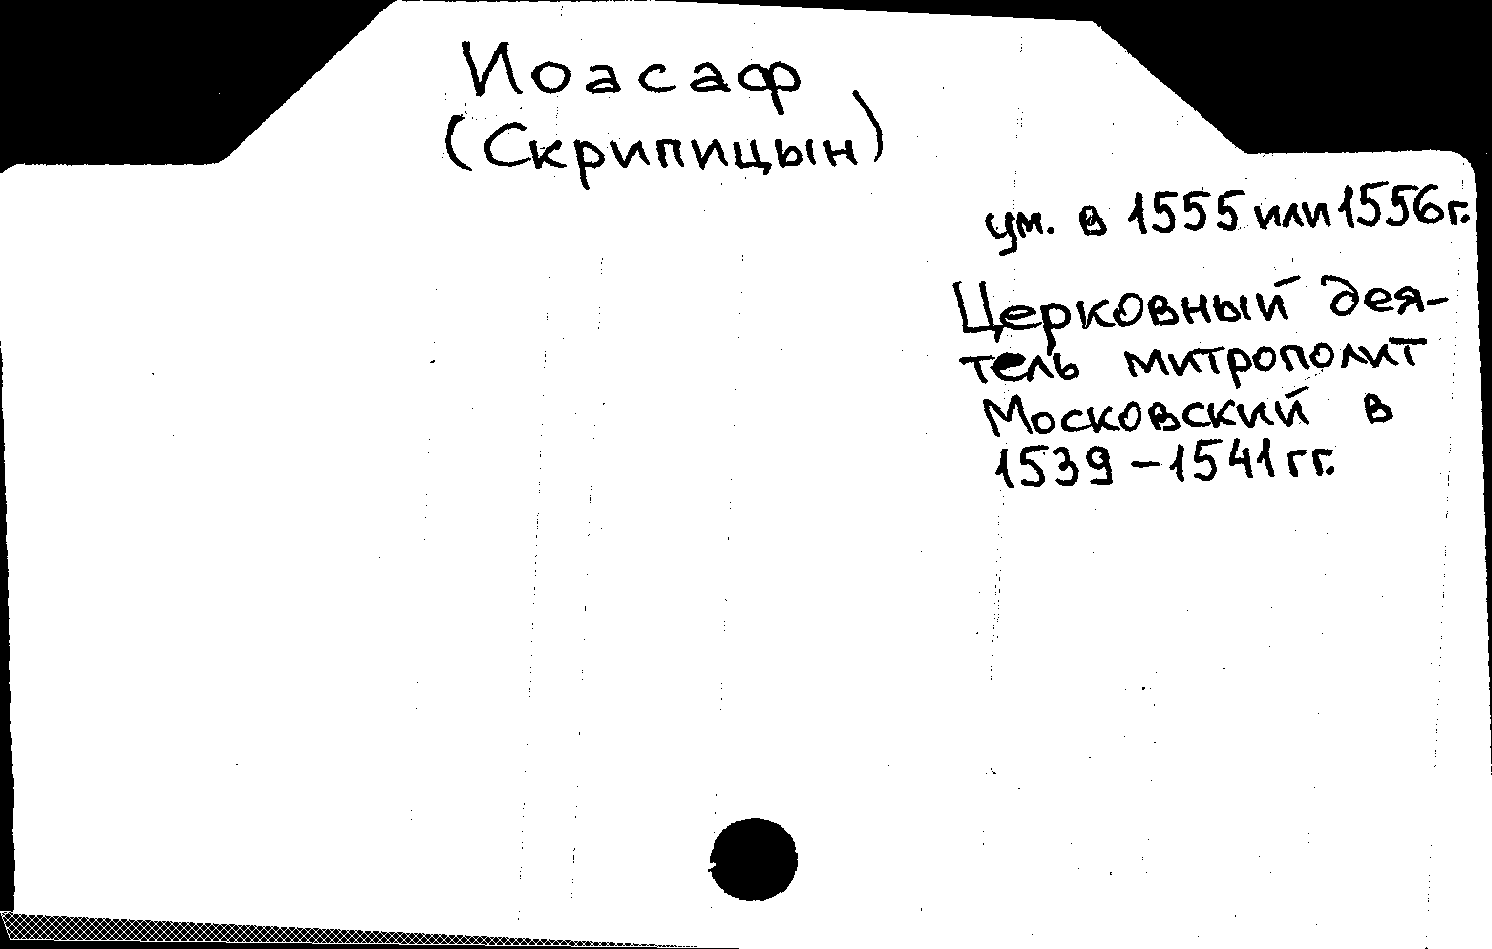 Иоасаф
(Скрипицын)
ум. в 1555 или 1556 г.
Церковный дея-
тель митрополит
Московский в
1539 – 1541 гг.